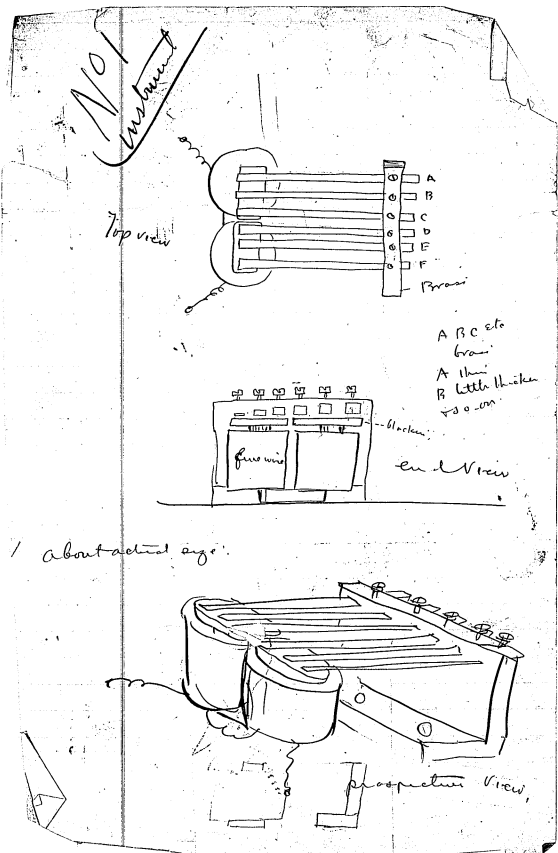 No 1
Instrument
A
B
C
D
E
F
Top view
Brass
A B C etc
brass
A thin
B little thicker
& so-on
blacken
fine wire
end View
about actual size.
prospective View,